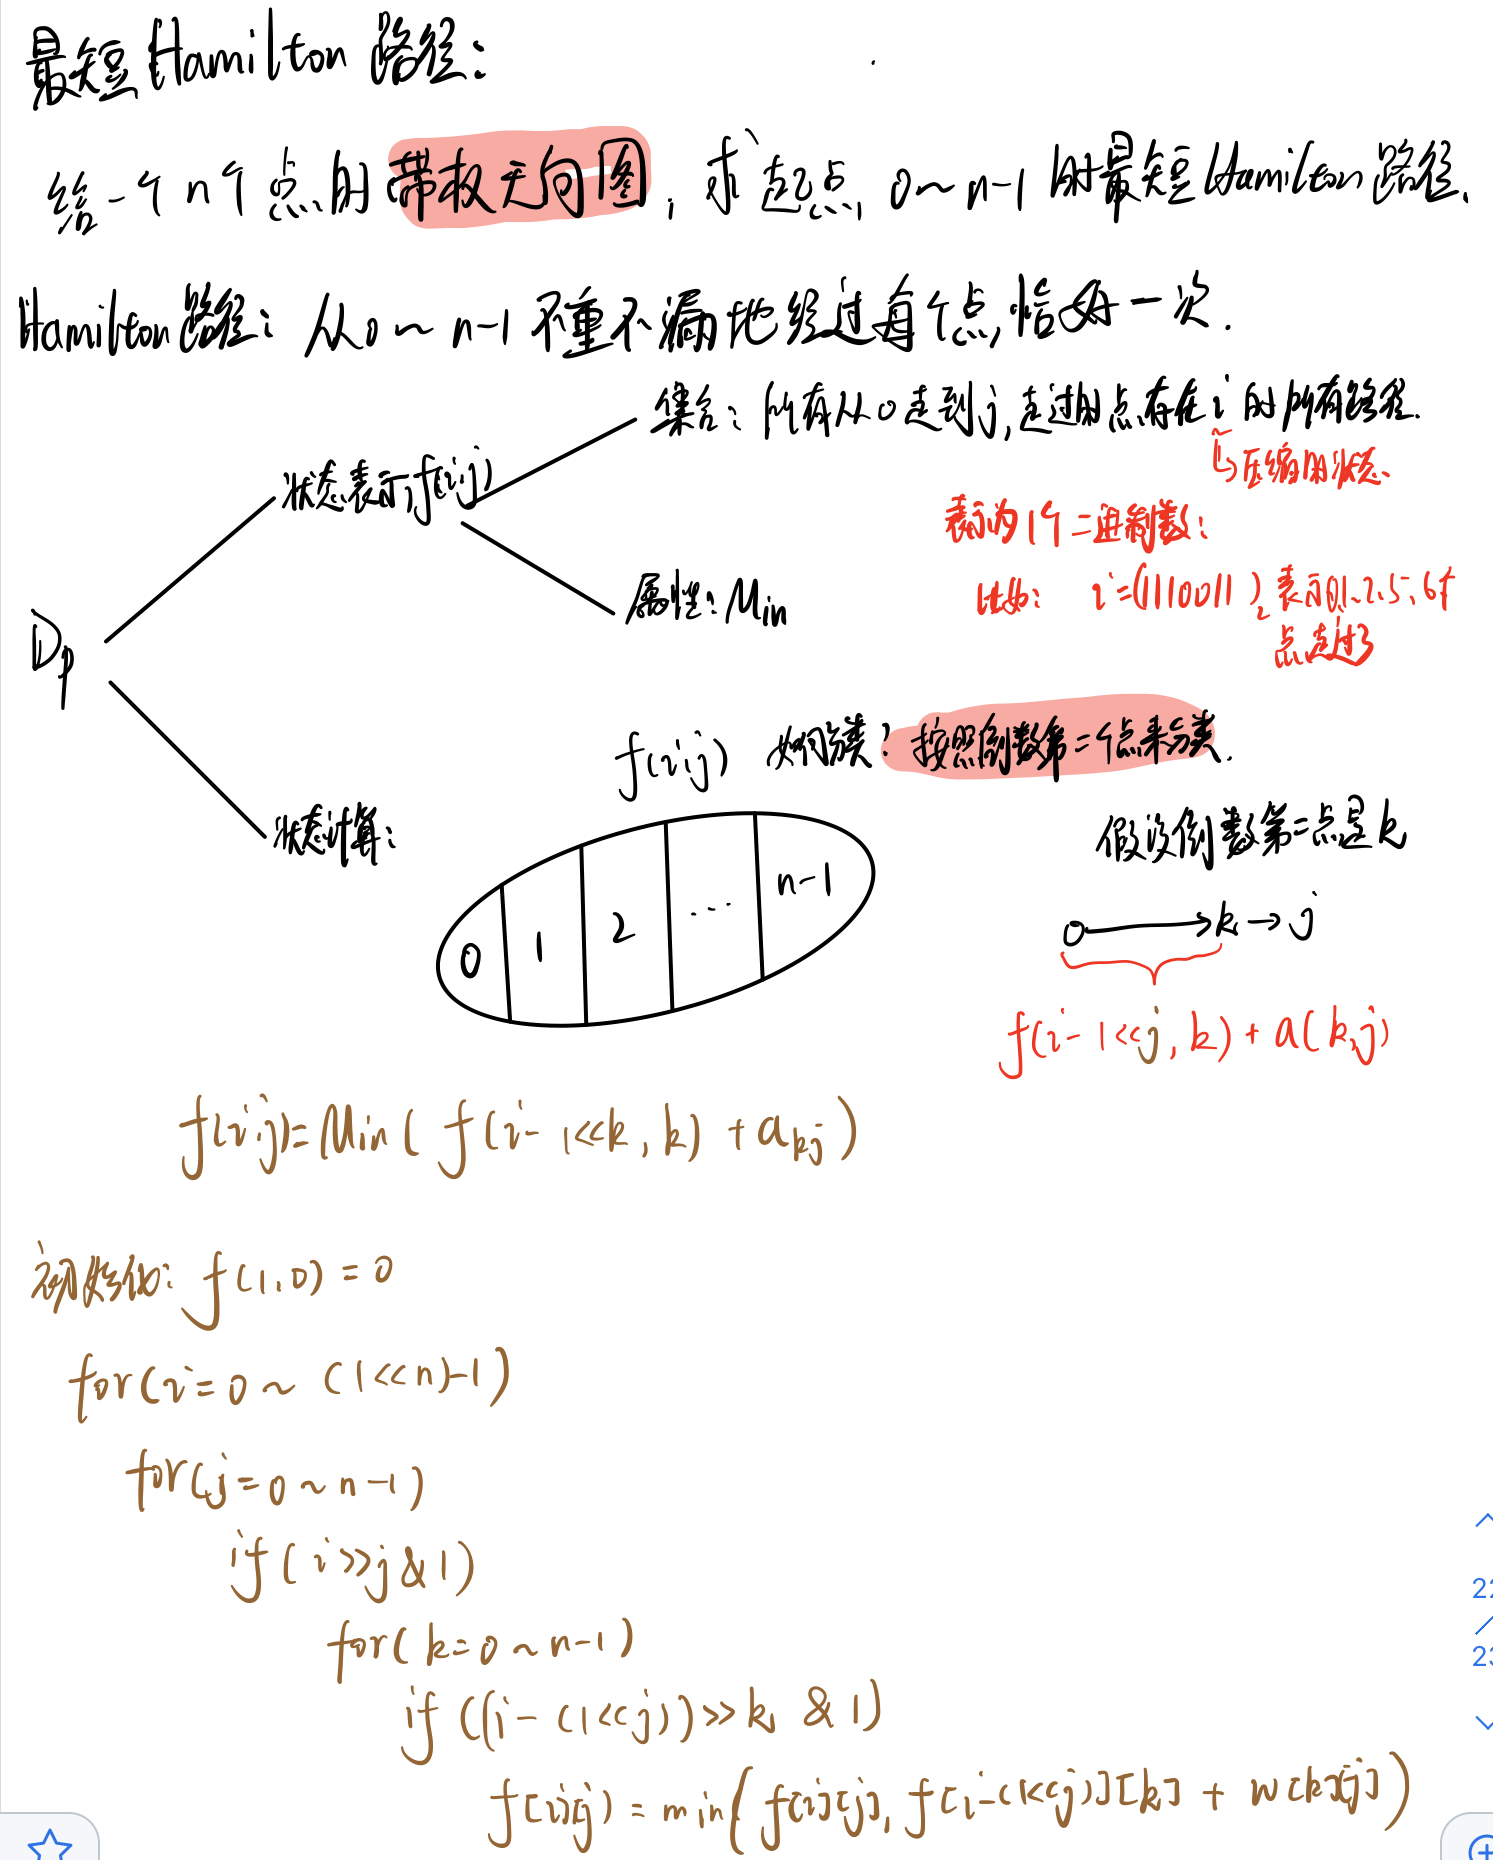 最短Hamilton 路径:
给一个n个点的带权无向图, 求起点 0~n-1 的最短Hamilton 路径.
Hamilton路径: 从0~n-1 不重不漏地经过每个点恰好一次.
集合: 所有从0走到j, 走过的点存在i的所有路径.
压缩的状态.
状态表示f(i,j)
表示为1个二进制数:
属性: Min
比如: i=(1110011)₂ 表示0,1,2,5,6个
点走过了
Dp
f(i,j) 如何分类? 按照倒数第二个点来分类.
状态计算:
假设倒数第二点是k
0 1 2 ... n-1
0→k→j
f(i-1<<j, k) + a(k,j)
f(i,j)=Min( f(i-1<<k, k) + akj )
初始化: f(1,0)=0
for(i=0~(1<<n)-1)
for(j=0~n-1)
if(i>>j&1)
for(k=0~n-1)
if((i-(1<<j))>>k & 1)
f[i][j) = min( f[i][j], f[i-(1<<j)][k] + w[k][j] )
22
/
23